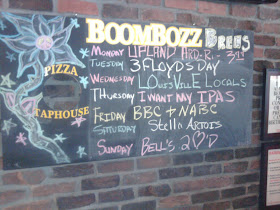 BOOMBOZZ BEERS
MONDAY UPLAND
TUESDAY 3 FLOYDS DAY
WEDNESDAY LOUISVILLE LOCALS
THURSDAY I WANT MY IPAS
FRIDAY BBC + NABC
SATURDAY Stella Artois
SUNDAY BELL'S
PIZZA
TAPHOUSE